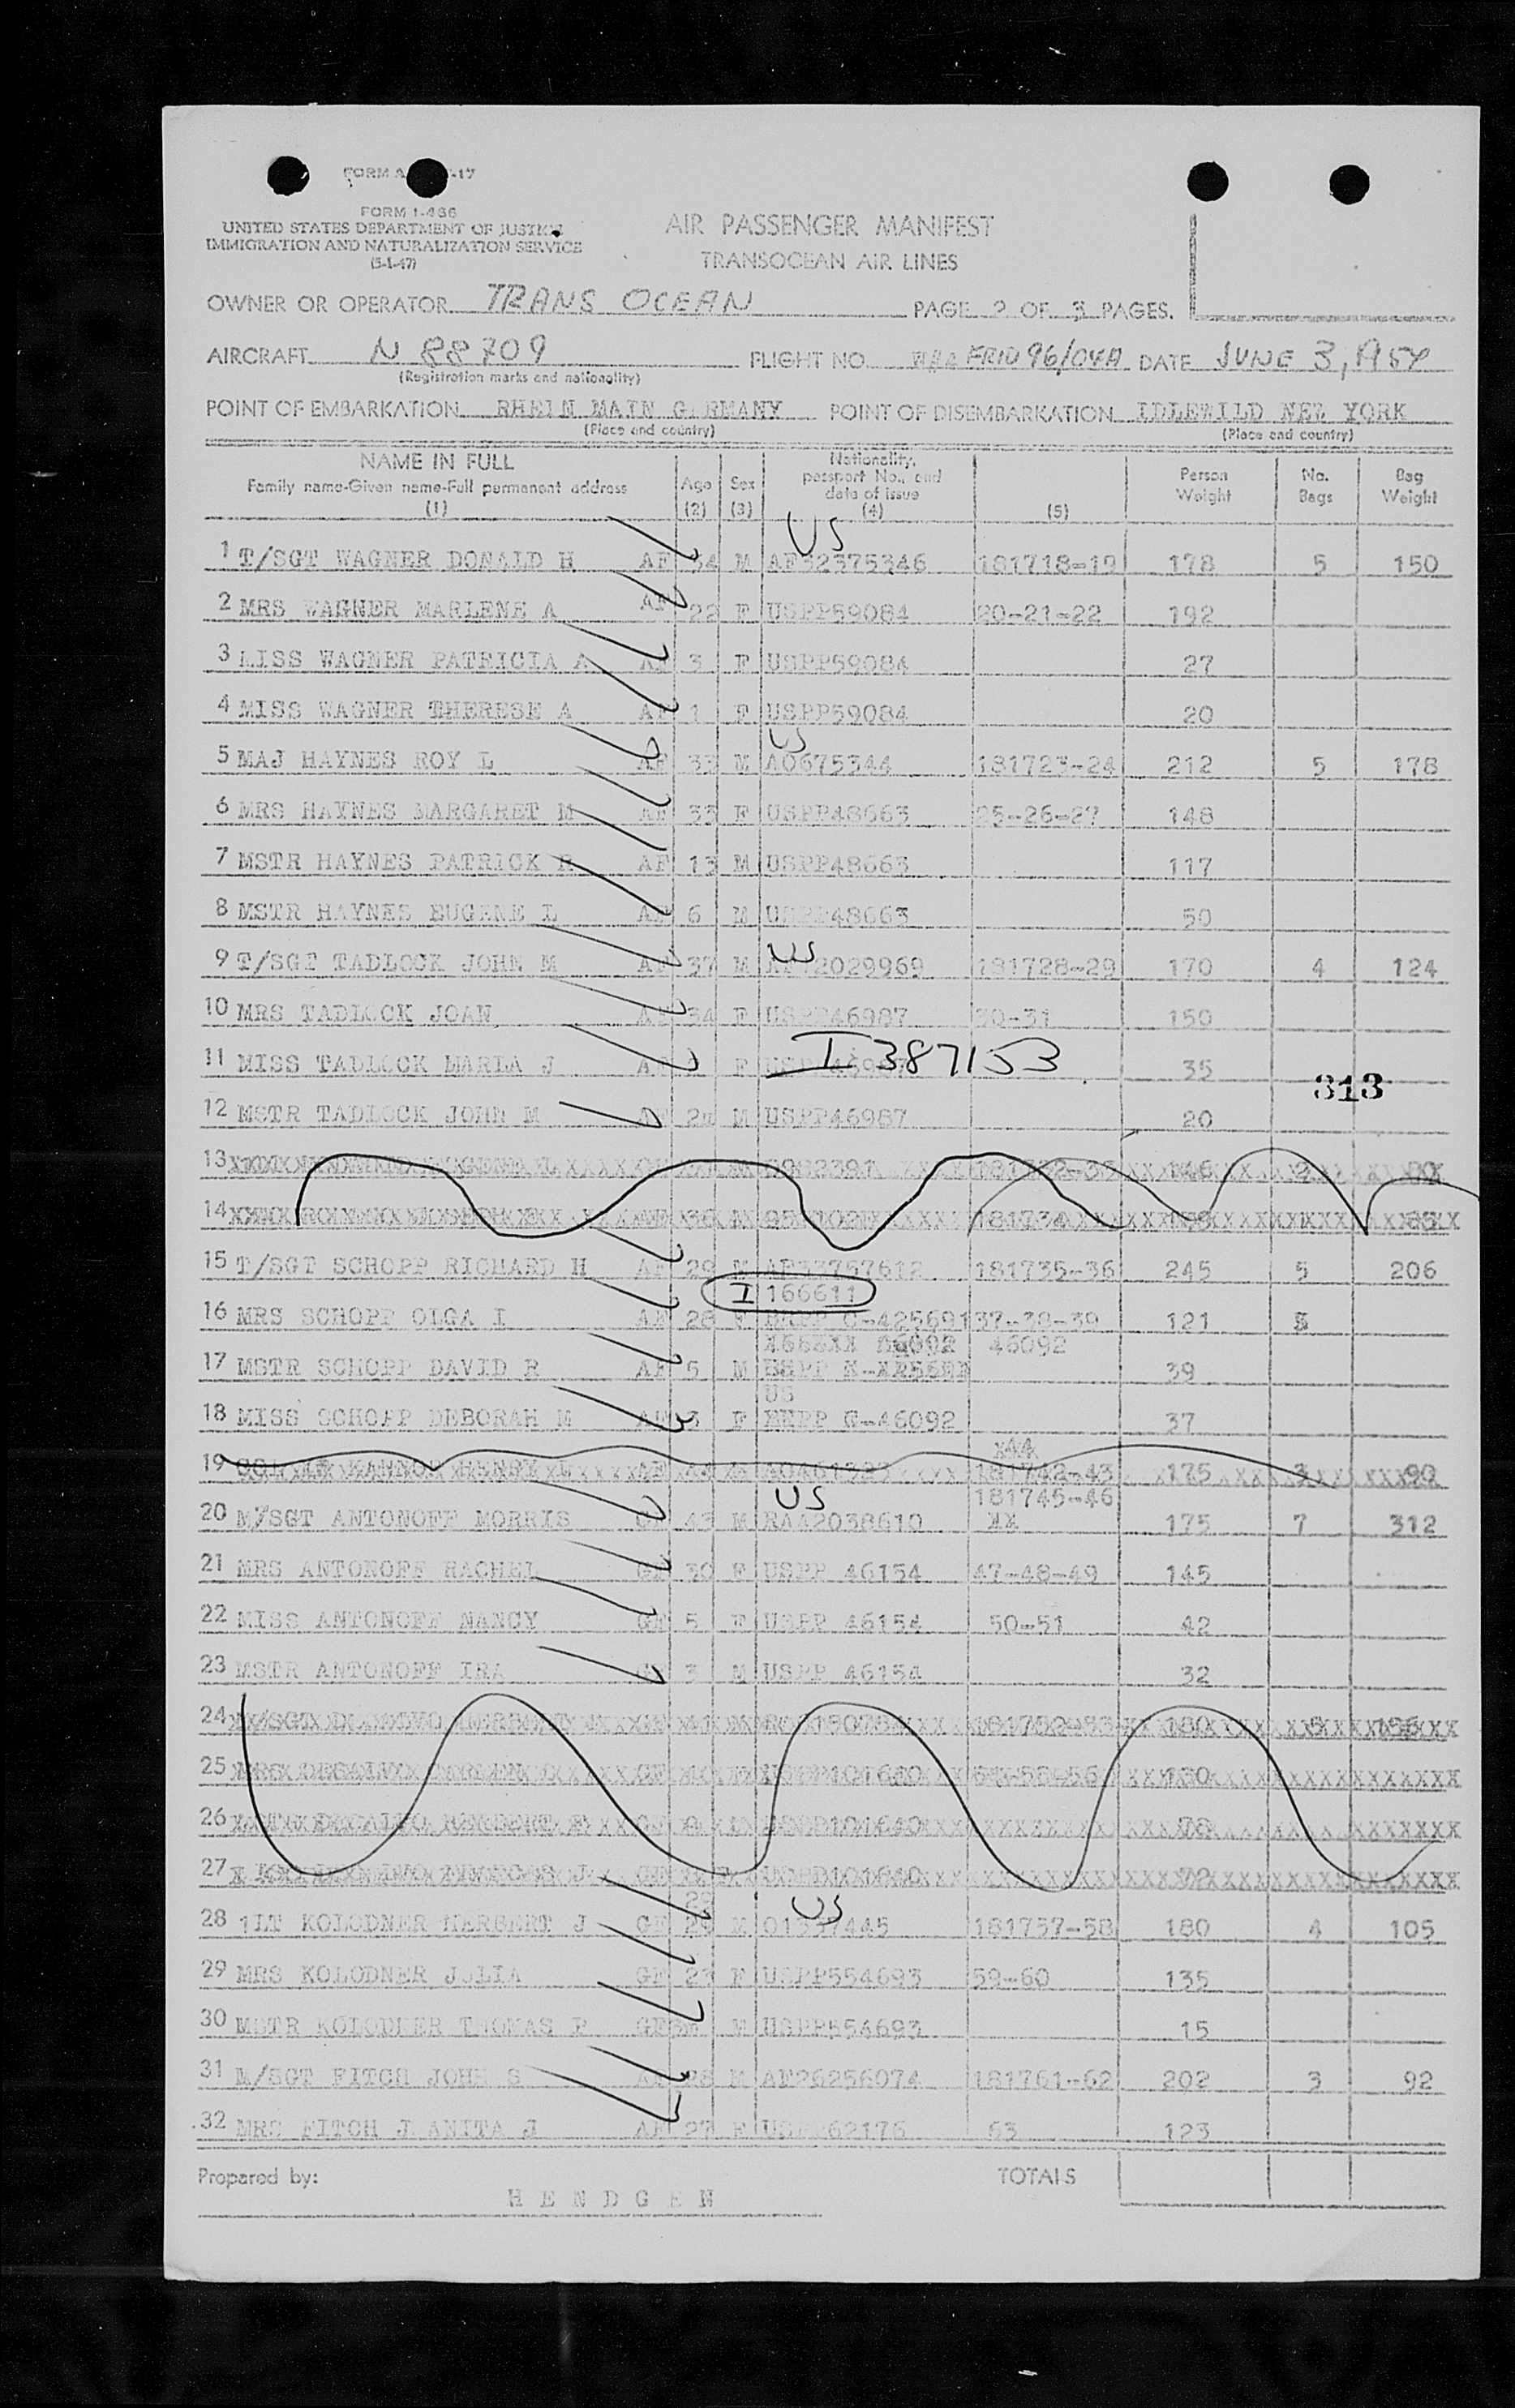 FORM I-466
UNITED STATES DEPARTMENT OF JUSTICE
IMMIGRATION AND NATURALIZATION SERVICE
(5-1-47)
AIR PASSENGER MANIFEST
TRANSOCEAN AIR LINES
OWNER OR OPERATOR TRANS OCEAN PAGE 2 OF 3 PAGES.
AIRCRAFT N 88709 FLIGHT NO. 96/04A DATE JUNE 3, 1954
(Registration marks and nationality)
POINT OF EMBARKATION RHEIN MAIN GERMANY POINT OF DISEMBARKATION IDLEWILD NEW YORK
(Place and country) (Place and country)
NAME IN FULL Family name-Given name-Full permanent address (1) Age (2) Sex (3) Nationality, passport No., and date of issue (4) (5) Person Weight No. Bags Bag Weight
US
1 T/SGT WAGNER DONALD H AF 34 M AF32375346 181718-19 178 5 150
2 MRS WAGNER MARLENE A AF 22 F USPP59084 20-21-22 192
3 MISS WAGNER PATRICIA A AF 3 F USPP59084 27
4 MISS WAGNER THERESE A AF 1 F USPP59084 20
US
5 MAJ HAYNES ROY L AF 33 M AO675344 181723-24 212 5 178
6 MRS HAYNES MARGARET M AF 33 F USPP48663 25-26-27 148
7 MSTR HAYNES PATRICK R AF 13 M USPP48663 117
8 MSTR HAYNES EUGENE L AF 6 M USPP48663 50
US
9 T/SGT TADLOCK JOHN M AF 37 M 2029969 181728-29 170 4 124
10 MRS TADLOCK JOAN AF 34 F USPP46987 30-31 150
11 MISS TADLOCK MARLA J F I 387153 35
313
12 MSTR TADLOCK JOHN M M USPP46987 20
13
14 181734
15 T/SGT SCHOPP RICHARD H AF 29 M AF33757612 181735-36 245 5 206
I 166611
16 MRS SCHOPP OLGA I AF 28 F C-425691 37-38-39 121
46092 46092
17 MSTR SCHOPP DAVID R AF 5 M 39
US
18 MISS SCHOPP DEBORAH M AF 3 F G-46092 37
x44
19 181742-43 175 3 90
US 181745-46
20 M/SGT ANTONOFF MORRIS GF 43 M RA42038610 XX 175 7 312
21 MRS ANTONOFF RACHEL GF 30 F USPP 46154 47-48-49 145
22 MISS ANTONOFF NANCY GF 5 F USPP 46154 50-51 42
23 MSTR ANTONOFF IRA GF 3 M USPP 46154 32
24
25
26
27
US
28 1LT KOLODNER HERBERT J GF 29 M 181757-58 180 4 105
29 MRS KOLODNER JULIA GF 23 F USPP554693 59-60 135
30 MSTR KOLODNER THOMAS P GF M USPP554693 15
31 M/SGT FITCH JOHN S AF 28 M AF26256074 181761-62 202 3 92
32 MRS FITCH J ANITA J AF 27 F USPP62176 63 123
Prepared by: TOTALS
H E N D G E N